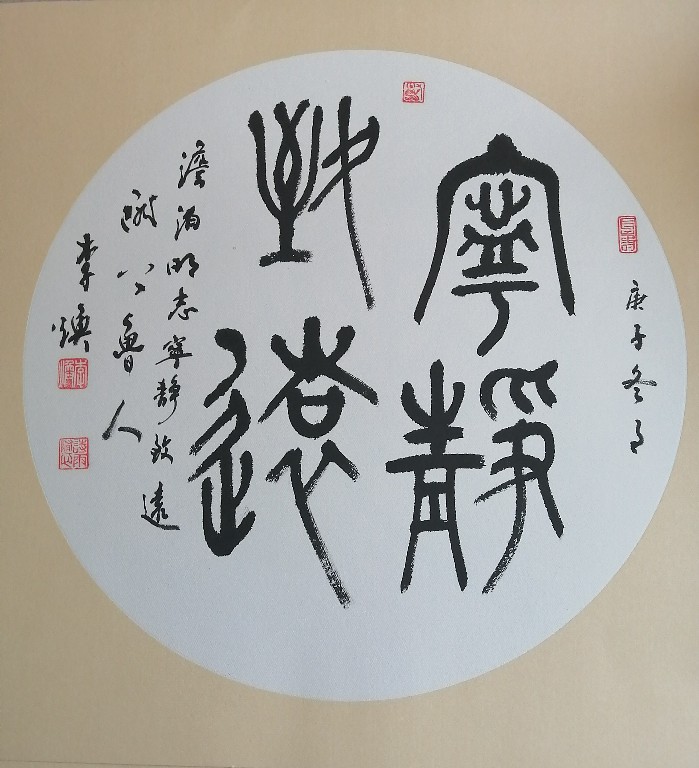 寧靜
致遠
庚子冬月
澹泊明志寧靜致遠
人
李煥